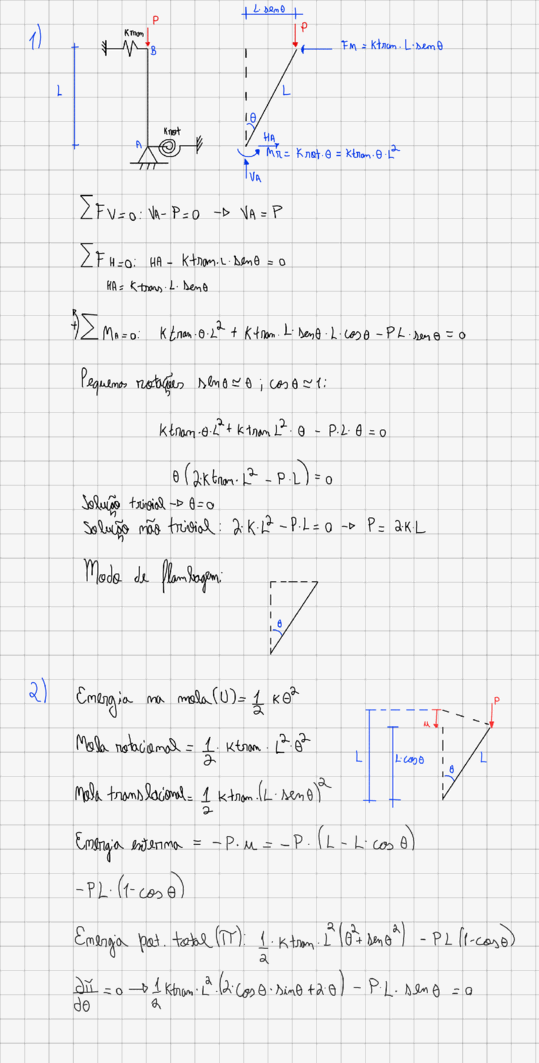 1)
P
Ktran
B
L
A
Krot
L·senθ
P
Fm = Ktran·L·senθ
L
θ
HA
MR = Krot·θ = Ktran·θ·L²
VA
∑FV=0: VA-P=0 → VA=P
∑FH=0: HA - Ktran·L·senθ = 0
HA = Ktrans·L·senθ
+) ∑MA=0: Ktran·θ·L² + Ktran·L·senθ·L·cosθ - PL·senθ = 0
Pequenas rotações senθ ≃ θ ; cosθ ≃ 1:
Ktran·θ·L² + KtranL²·θ - P·L·θ = 0
θ(2·Ktran·L² - P·L) = 0
Solução trivial → θ=0
Solução não trivial: 2·K·L² - P·L = 0 → P = 2·K·L
Modo de flambagem:
θ
2)
Energia na mola (U) = 1/2 Kθ²
Mola rotacional = 1/2 · Ktran · L²·θ²
Mola translacional = 1/2 Ktran·(L·senθ)²
P
u
L
L·cosθ
θ
L
Energia externa = -P·u = -P·(L - L·cosθ)
-PL·(1-cosθ)
Energia pot. total (π): 1/2 · Ktran·L²(θ²+senθ²) - PL(1-cosθ)
∂π/∂θ = 0 → 1/2 Ktran·L²·(2·cosθ·sinθ+2·θ) - P·L·senθ = 0